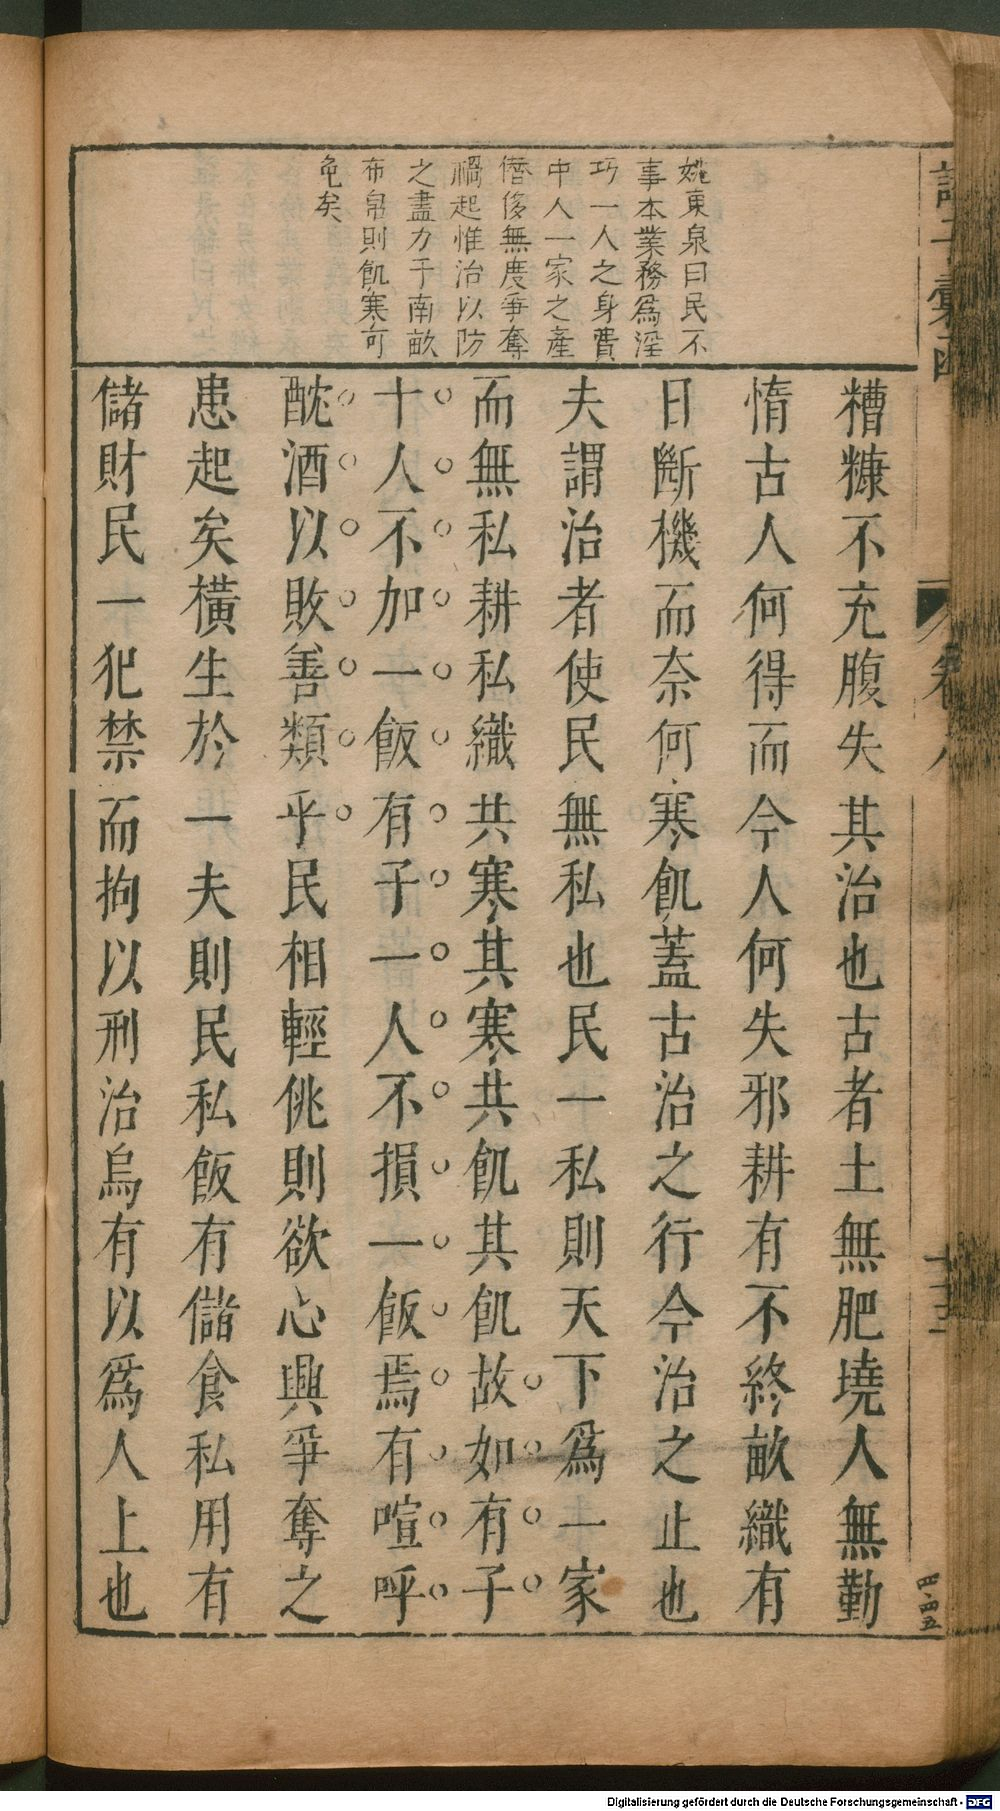 姚東泉曰民不
事本業務爲淫
巧一人之身費
中人一家之產
僭侈無度爭奪
禍起惟治以防
之盡力于南畝
布帛則飢寒可
免矣
糟糠不充腹失其治也古者土無肥墝人無勤
惰古人何得而今人何失邪耕有不終畝織有
日斷機而奈何寒飢蓋古治之行今治之止也
夫謂治者使民無私也民一私則天下爲一家
而無私耕私織共寒其寒共飢其飢故如有子
十人不加一飯有子一人不損一飯焉有喧呼
酖酒以敗善類乎民相輕佻則欲心興爭奪之
患起矣橫生於一夫則民私飯有儲食私用有
儲財民一犯禁而拘以刑治烏有以爲人上也
卷八
十三
四四五
Digitalisierung gefördert durch die Deutsche Forschungsgemeinschaft - DFG